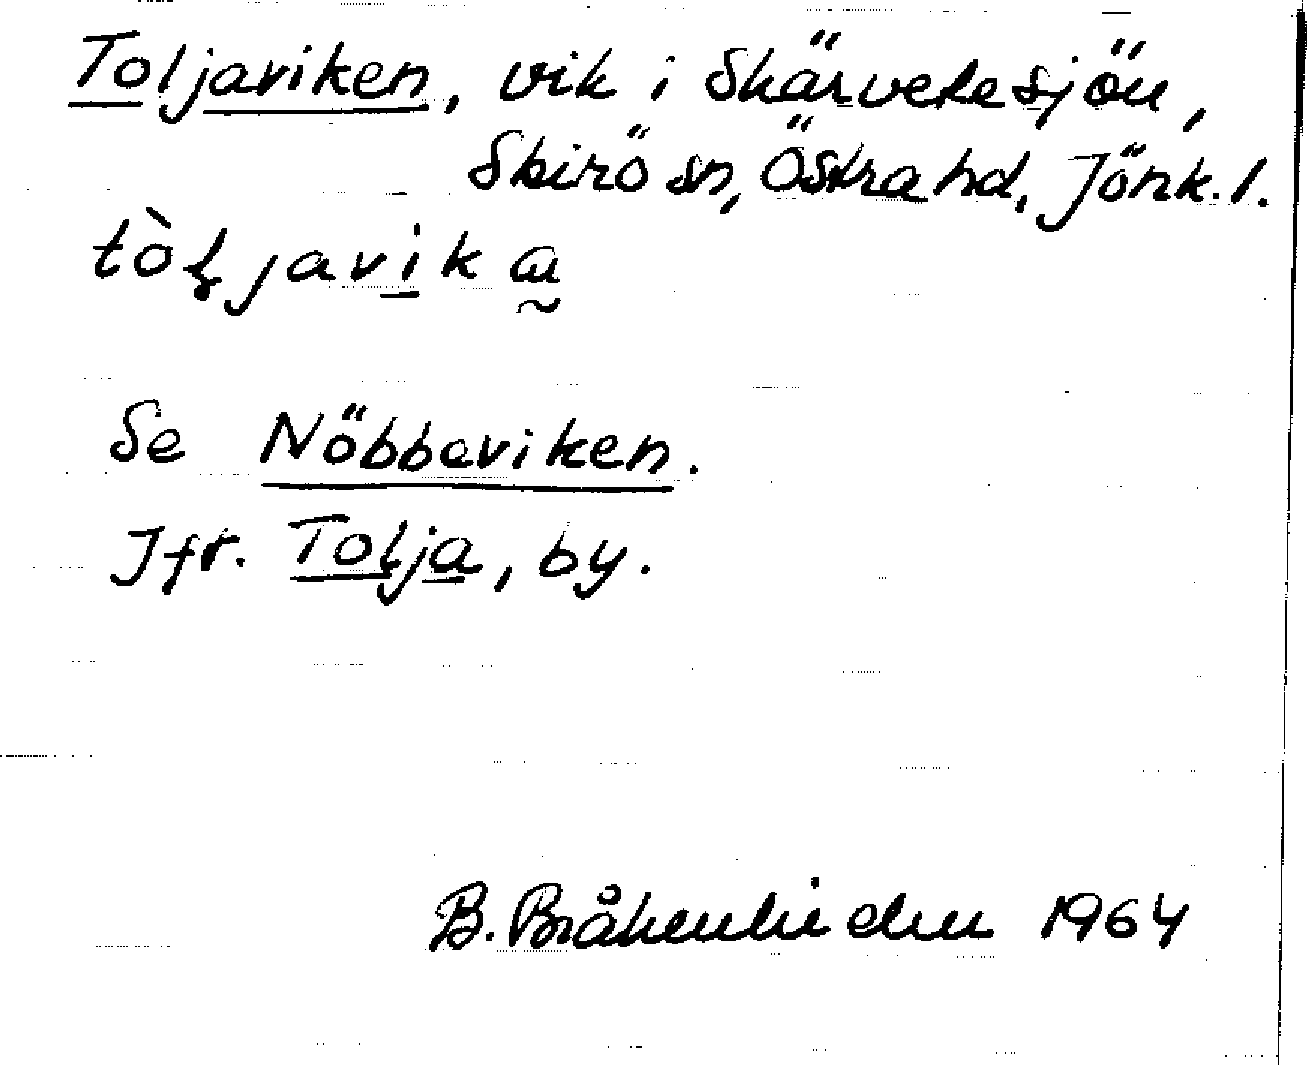 Toljaviken, vik i Skärvetesjön,
Skirö sn, Östra hd, Jönk. l.
tòljavika
Se Nöbbeviken.
Jfr. Tolja, by.
B. 1964